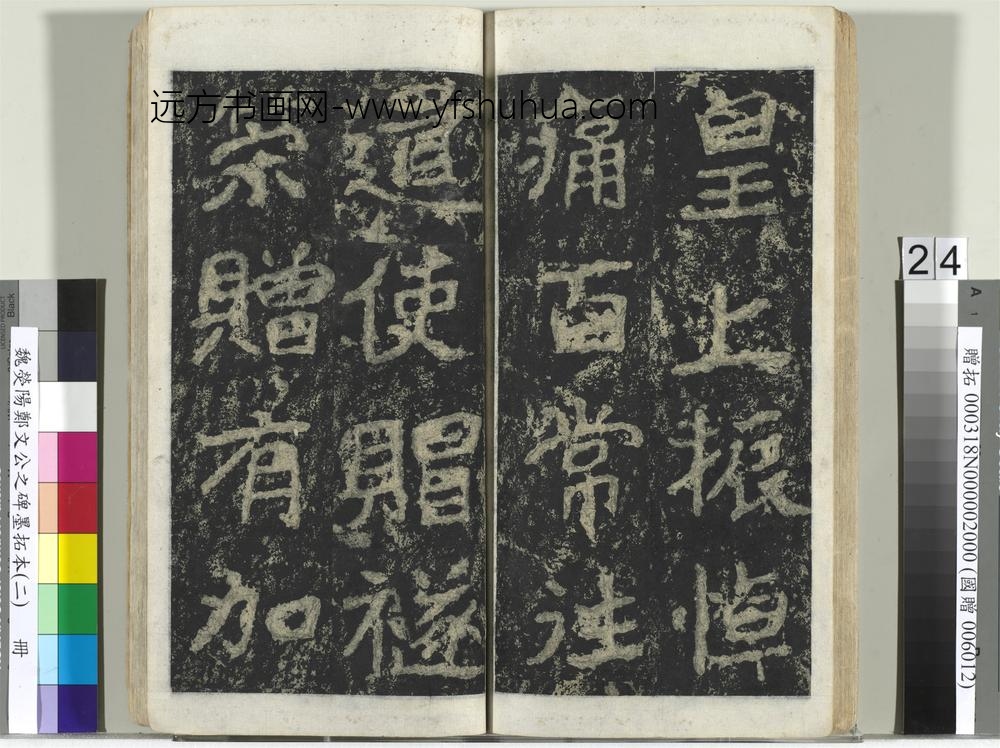 远方书画网-www.yfshuhua.com
皇上振悼
痛百常往
遣使賵襚
策贈有加
24
贈拓 000318N000002000 (國贈 006012)
魏滎陽鄭文公之碑墨拓本(二) 冊
Black
A 1